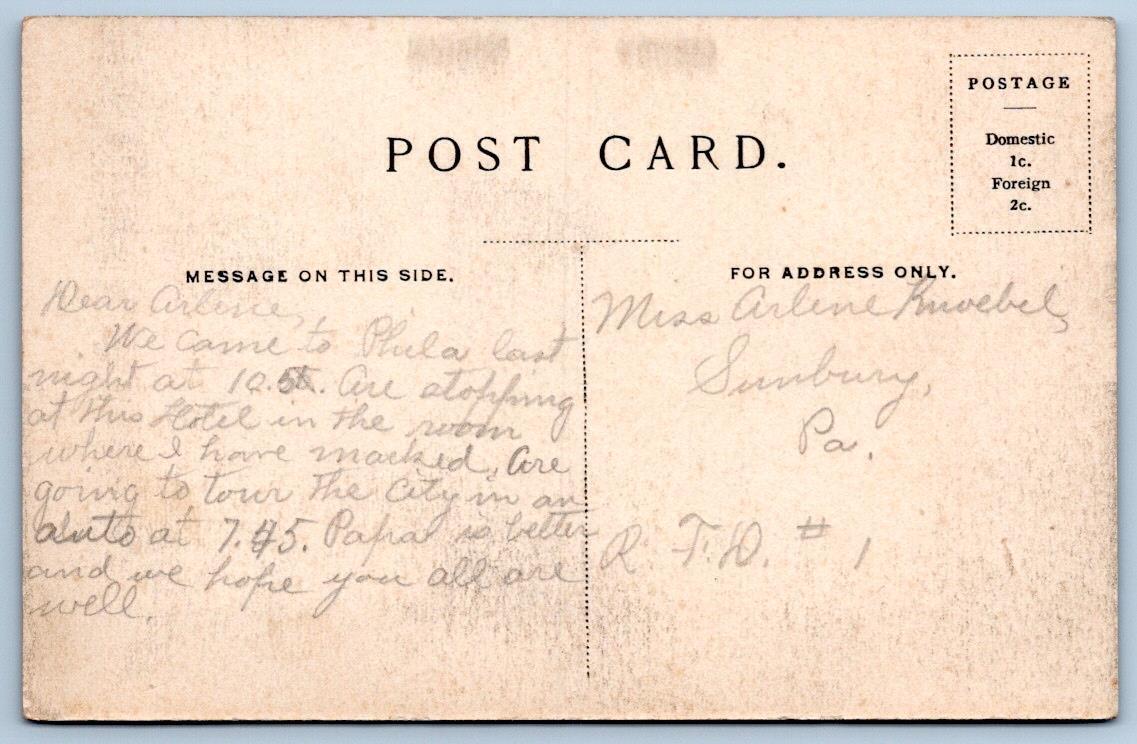 POST CARD.
POSTAGE
Domestic
1c.
Foreign
2c.
MESSAGE ON THIS SIDE.
Dear Arlene,
We came to Phila last
night at 10. Are stopping
at this Hotel in the room
where I have marked. Are
going to tour the City in an
auto at 7.45. Papa is better
and we hope you all are
well.
FOR ADDRESS ONLY.
Miss Arlene Knoebel,
Sunbury,
Pa.
R. F. D. # 1